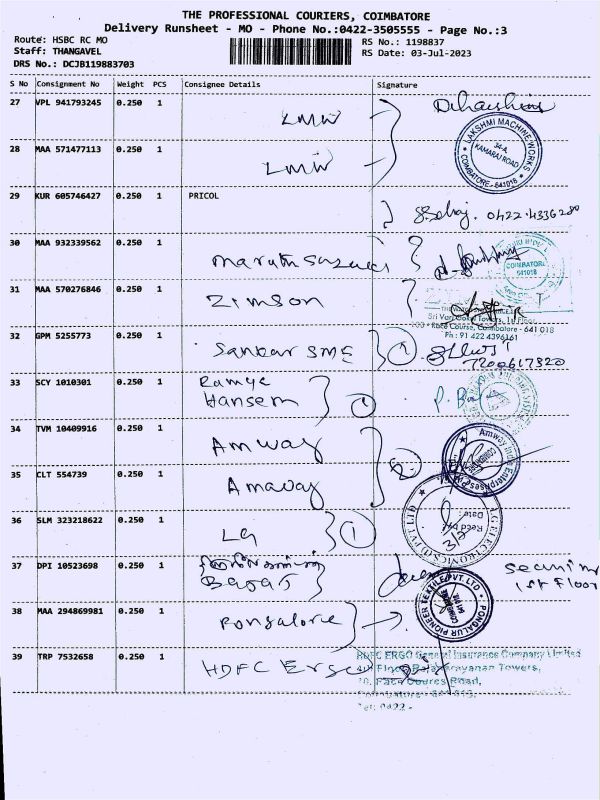 THE PROFESSIONAL COURIERS, COIMBATORE
Delivery Runsheet - MO - Phone No.:0422-3505555 - Page No.:3
Route: HSBC RC MO
RS No.: 1198837
Staff: THANGAVEL
RS Date: 03-Jul-2023
DRS No.: DCJB119883703
S No Consignment No Weight PCS Consignee Details Signature
27 VPL 941793245 0.250 1 LMW
28 MAA 571477113 0.250 1 LMW
LAKSHMI MACHINE WORKS
34-A,
KAMARAJ ROAD
COIMBATORE - 641018
29 KUR 605746427 0.250 1 PRICOL
0422-4336280
30 MAA 932339562 0.250 1 Maruti Suzuki
COIMBATORE
641018
31 MAA 570276846 0.250 1 Zimson
Sri Vari Gokul Towers, 1st Floor,
Race Course, Coimbatore - 641 018
Ph : 91 422 4396161
32 GPM 5255773 0.250 1 Sankar SME 1
7200617320
33 SCY 1010301 0.250 1 Ramya
Hansem 1 P. Bala
34 TVM 10409916 0.250 1 Amway
2
35 CLT 554739 0.250 1 Amway
36 SLM 323218622 0.250 1 LG 1
LG ELECTRONICS (I) PVT LTD
Recd by
Date
3/7
37 DPI 10523698 0.250 1
Bajaj
Security
1st Floor
38 MAA 294869981 0.250 1 Pongalore
PONGALUR PIONEER TEXTILE PVT. LTD
39 TRP 7532658 0.250 1 HDFC Ergo
HDFC ERGO General Insurance Company Limited
Floor, Towers,
Road,
Tel: 0422 -